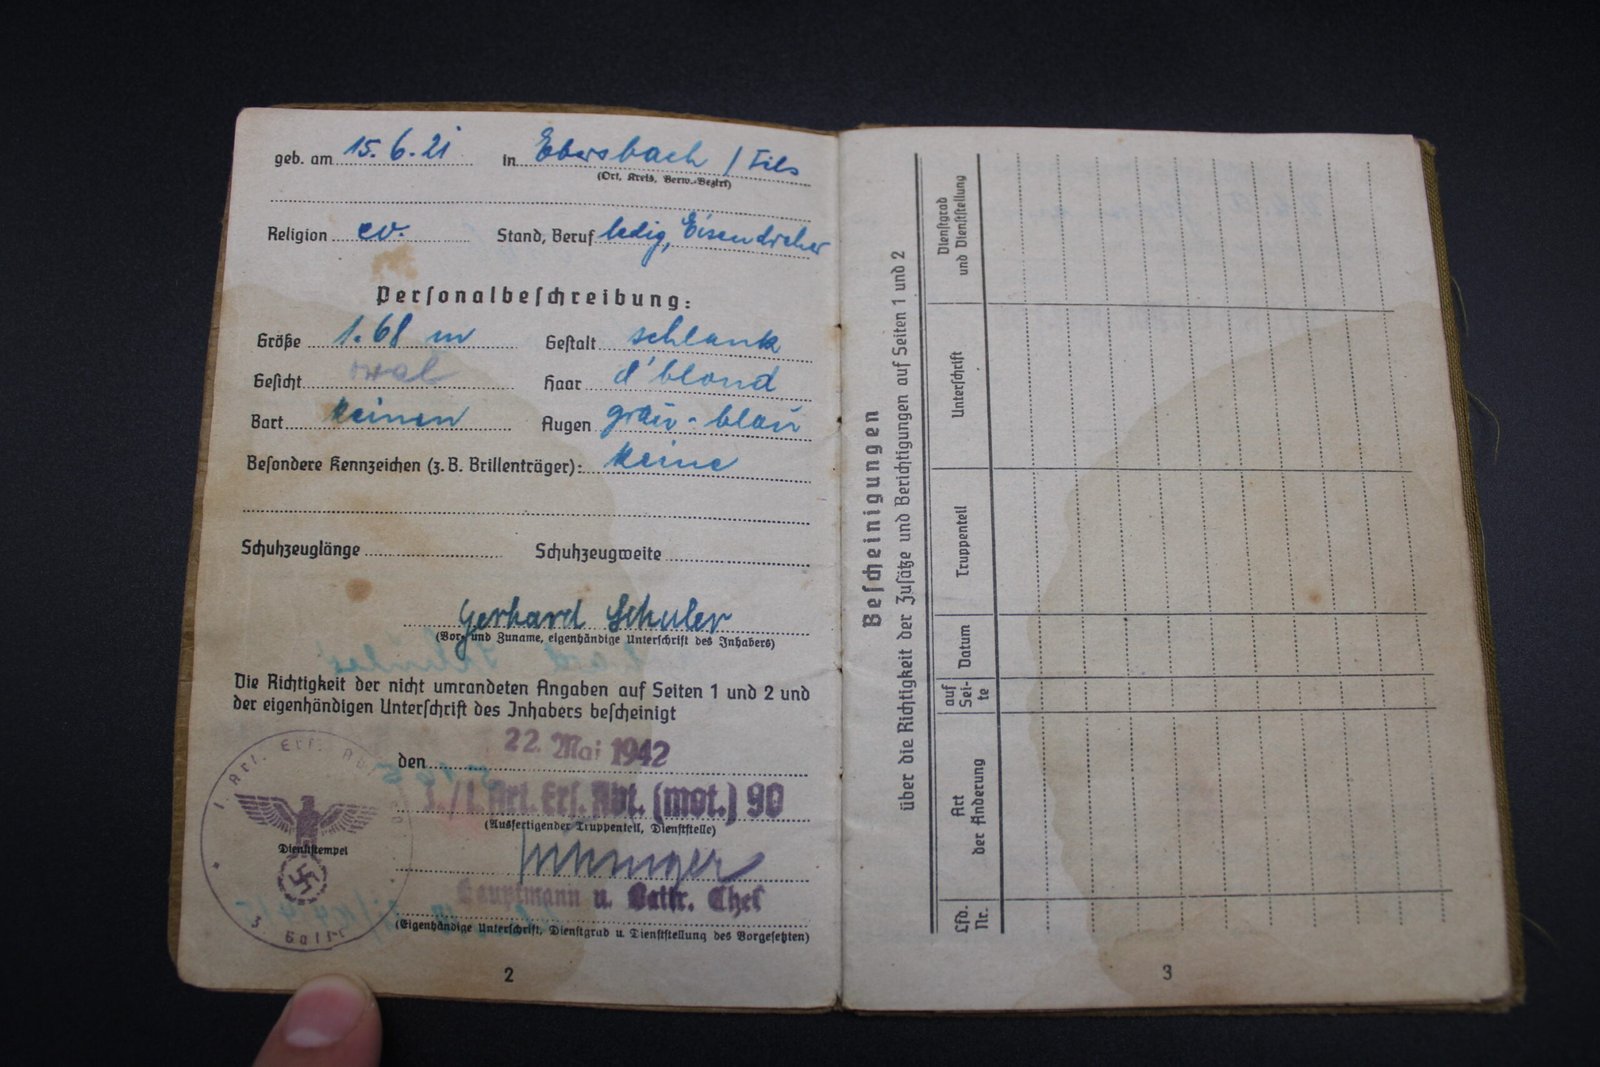 geb. am 15.6.21 in Ebersbach / Fils
(Ort, Kreis, Verw.-Bezirk)
Religion ev. Stand, Beruf ledig, Eisendreher
Personalbeschreibung:
Größe 1.68 m Gestalt schlank
Gesicht oval Haar d'blond
Bart keinen Augen grau-blau
Besondere Kennzeichen (z.B. Brillenträger): keine
Schuhzeuglänge Schuhzeugweite
Gerhard Schuler
(Vor- und Zuname, eigenhändige Unterschrift des Inhabers)
Die Richtigkeit der nicht umrandeten Angaben auf Seiten 1 und 2 und
der eigenhändigen Unterschrift des Inhabers bescheinigt
den 22. Mai 1942
/ I. Art. Ers. Abt. (mot.) 90
(Ausfertigender Truppenteil, Dienststelle)
Hauptmann u. Battr. Chef
(Eigenhändige Unterschrift, Dienstgrad u. Dienststellung des Vorgesetzten)
Art. Ers. Abt.
Dienststempel
3. Batt
2
Bescheinigungen
über die Richtigkeit der Zusätze und Berichtigungen auf Seiten 1 und 2
Lfd.
Nr.
Art
der Änderung
auf
Sei-
te
Datum
Truppenteil
Unterschrift
Dienstgrad
und Dienststellung
3